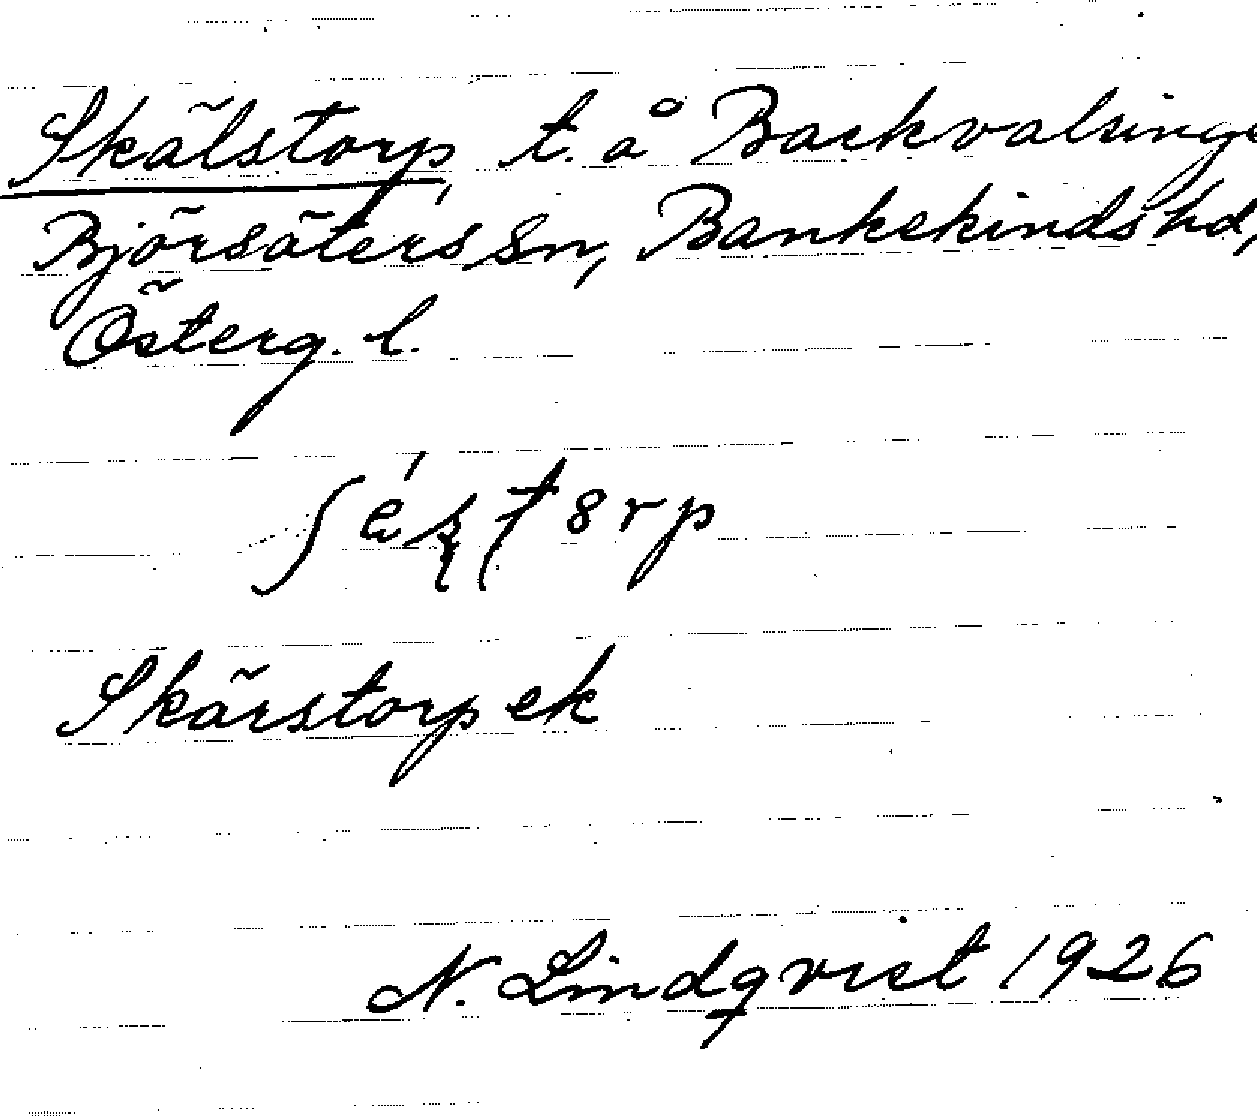 Skälstorp, t. å Backvalsinge
Björsäters sn, Bankekinds hd,
Österg. l.
Skärstorp ek
N. Lindqvist 1926